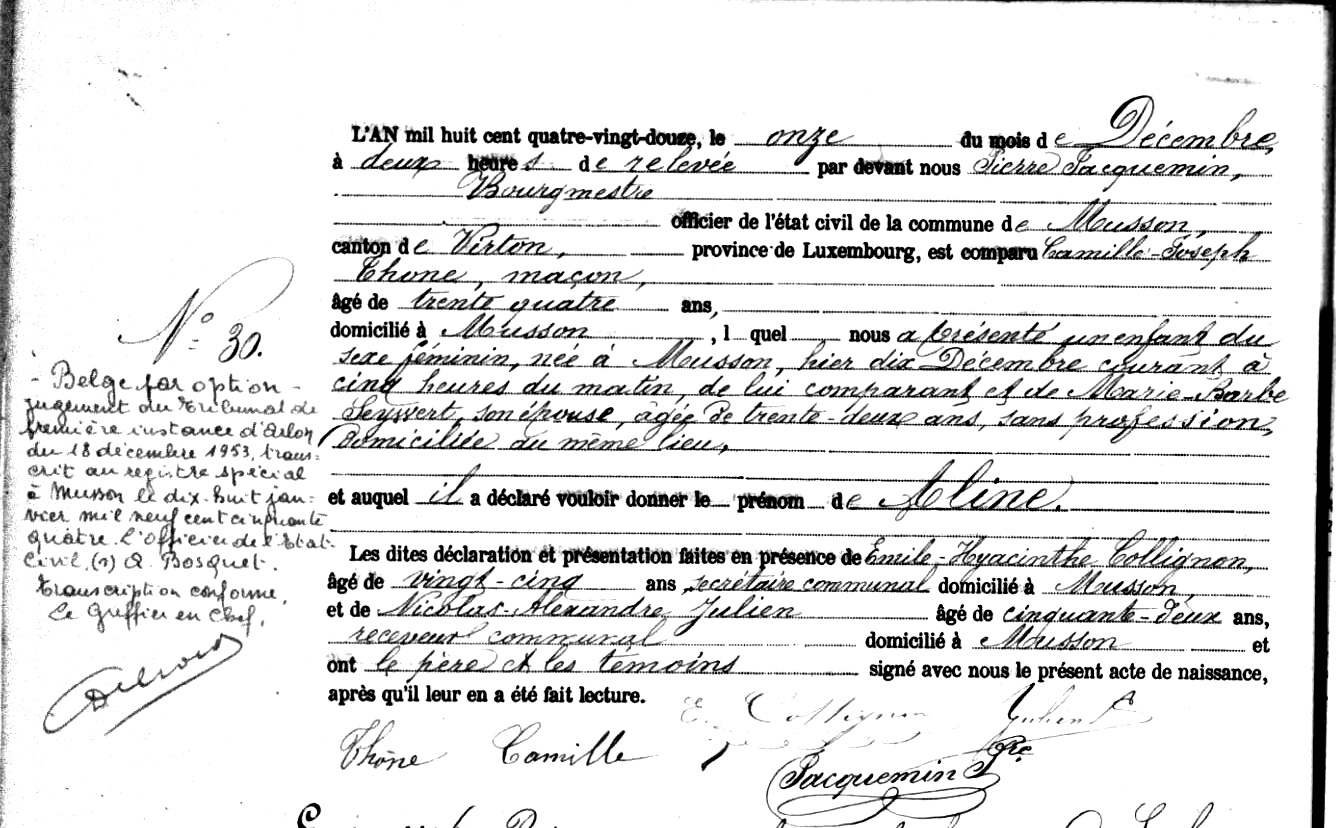 L'AN mil huit cent quatre-vingt-douze, le onze du mois de Décembre,
à deux heures de relevée par devant nous Pierre Jacquemin,
Bourgmestre
officier de l'état civil de la commune de Musson,
canton de Virton, province de Luxembourg, est comparu Camille-Joseph
Thone, maçon,
âgé de trente quatre ans,
domicilié à Musson, lquel nous a présenté un enfant du
sexe féminin, née à Musson, hier dix Décembre courant à
cinq heures du matin, de lui comparant et de Marie-Barbe
Seyvert, son épouse, âgée de trente-deux ans, sans profession,
domiciliée au même lieu,
et auquel il a déclaré vouloir donner le prénom de Aline.
Les dites déclaration et présentation faites en présence de Emile-Hyacinthe Collignon,
âgé de vingt-cinq ans, secrétaire communal domicilié à Musson,
et de Nicolas-Alexandre Julien âgé de cinquante-deux ans,
receveur communal domicilié à Musson et
ont le père et les témoins signé avec nous le présent acte de naissance,
après qu'il leur en a été fait lecture.
E. Collignon
Thône Camille
Jacquemin Pre
N° 30.
- Belge par option -
jugement du Tribunal de
première instance d'Arlon
du 18 décembre 1953, trans=
crit au registre spécial
à Musson le dix-huit jan=
vier mil neuf cent cinquante
quatre. L'officier de l'Etat-
Civil, (s) A. Bosquet.
Transcription conforme,
Le Greffier en Chef,